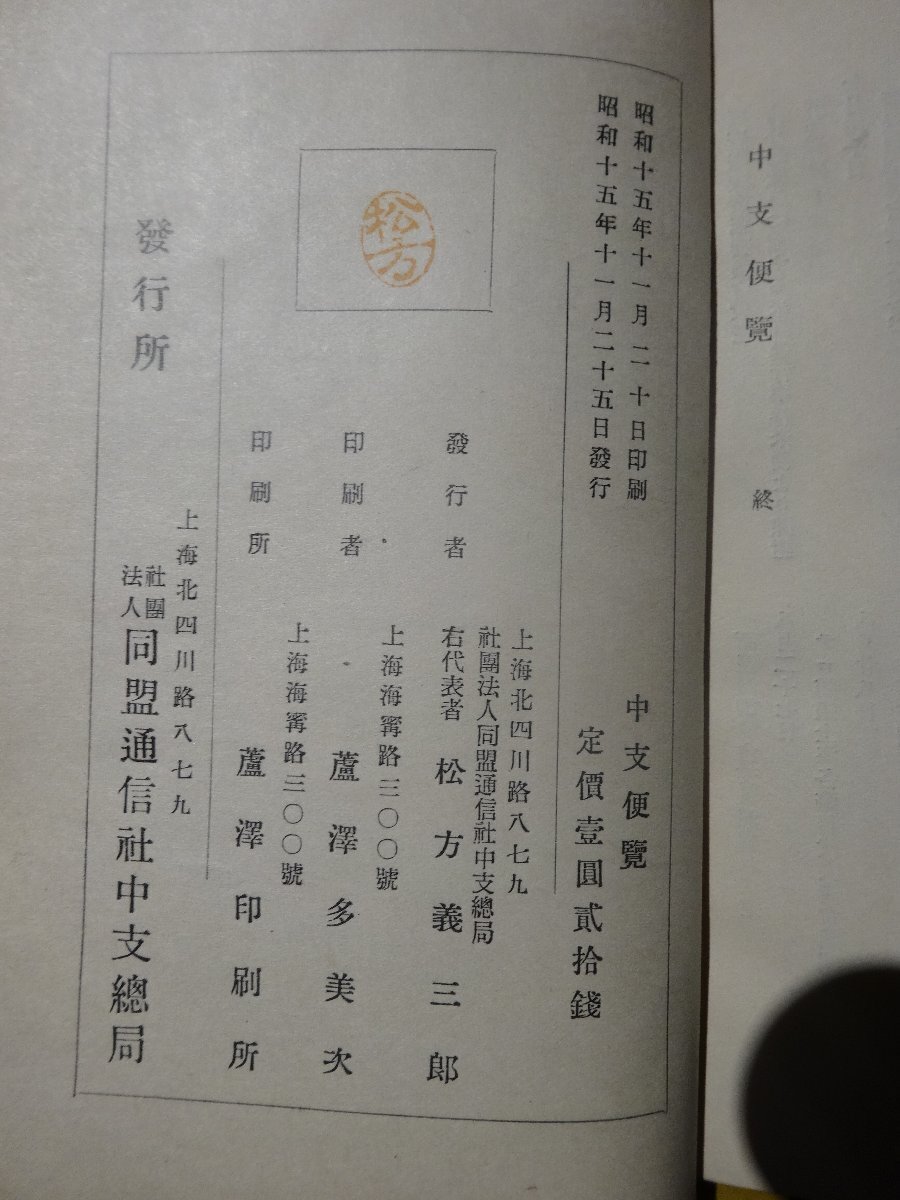 中支便覽 終
昭和十五年十一月二十日印刷
昭和十五年十一月二十五日發行
中支便覽
定價壹圓貳拾錢
松方
上海北四川路八七九
社團法人同盟通信社中支總局
發行者 右代表者 松方義三郎
上海海甯路三〇〇號
印刷者 蘆澤多美次
上海海甯路三〇〇號
印刷所 蘆澤印刷所
上海北四川路八七九
發行所 社團法人 同盟通信社中支總局